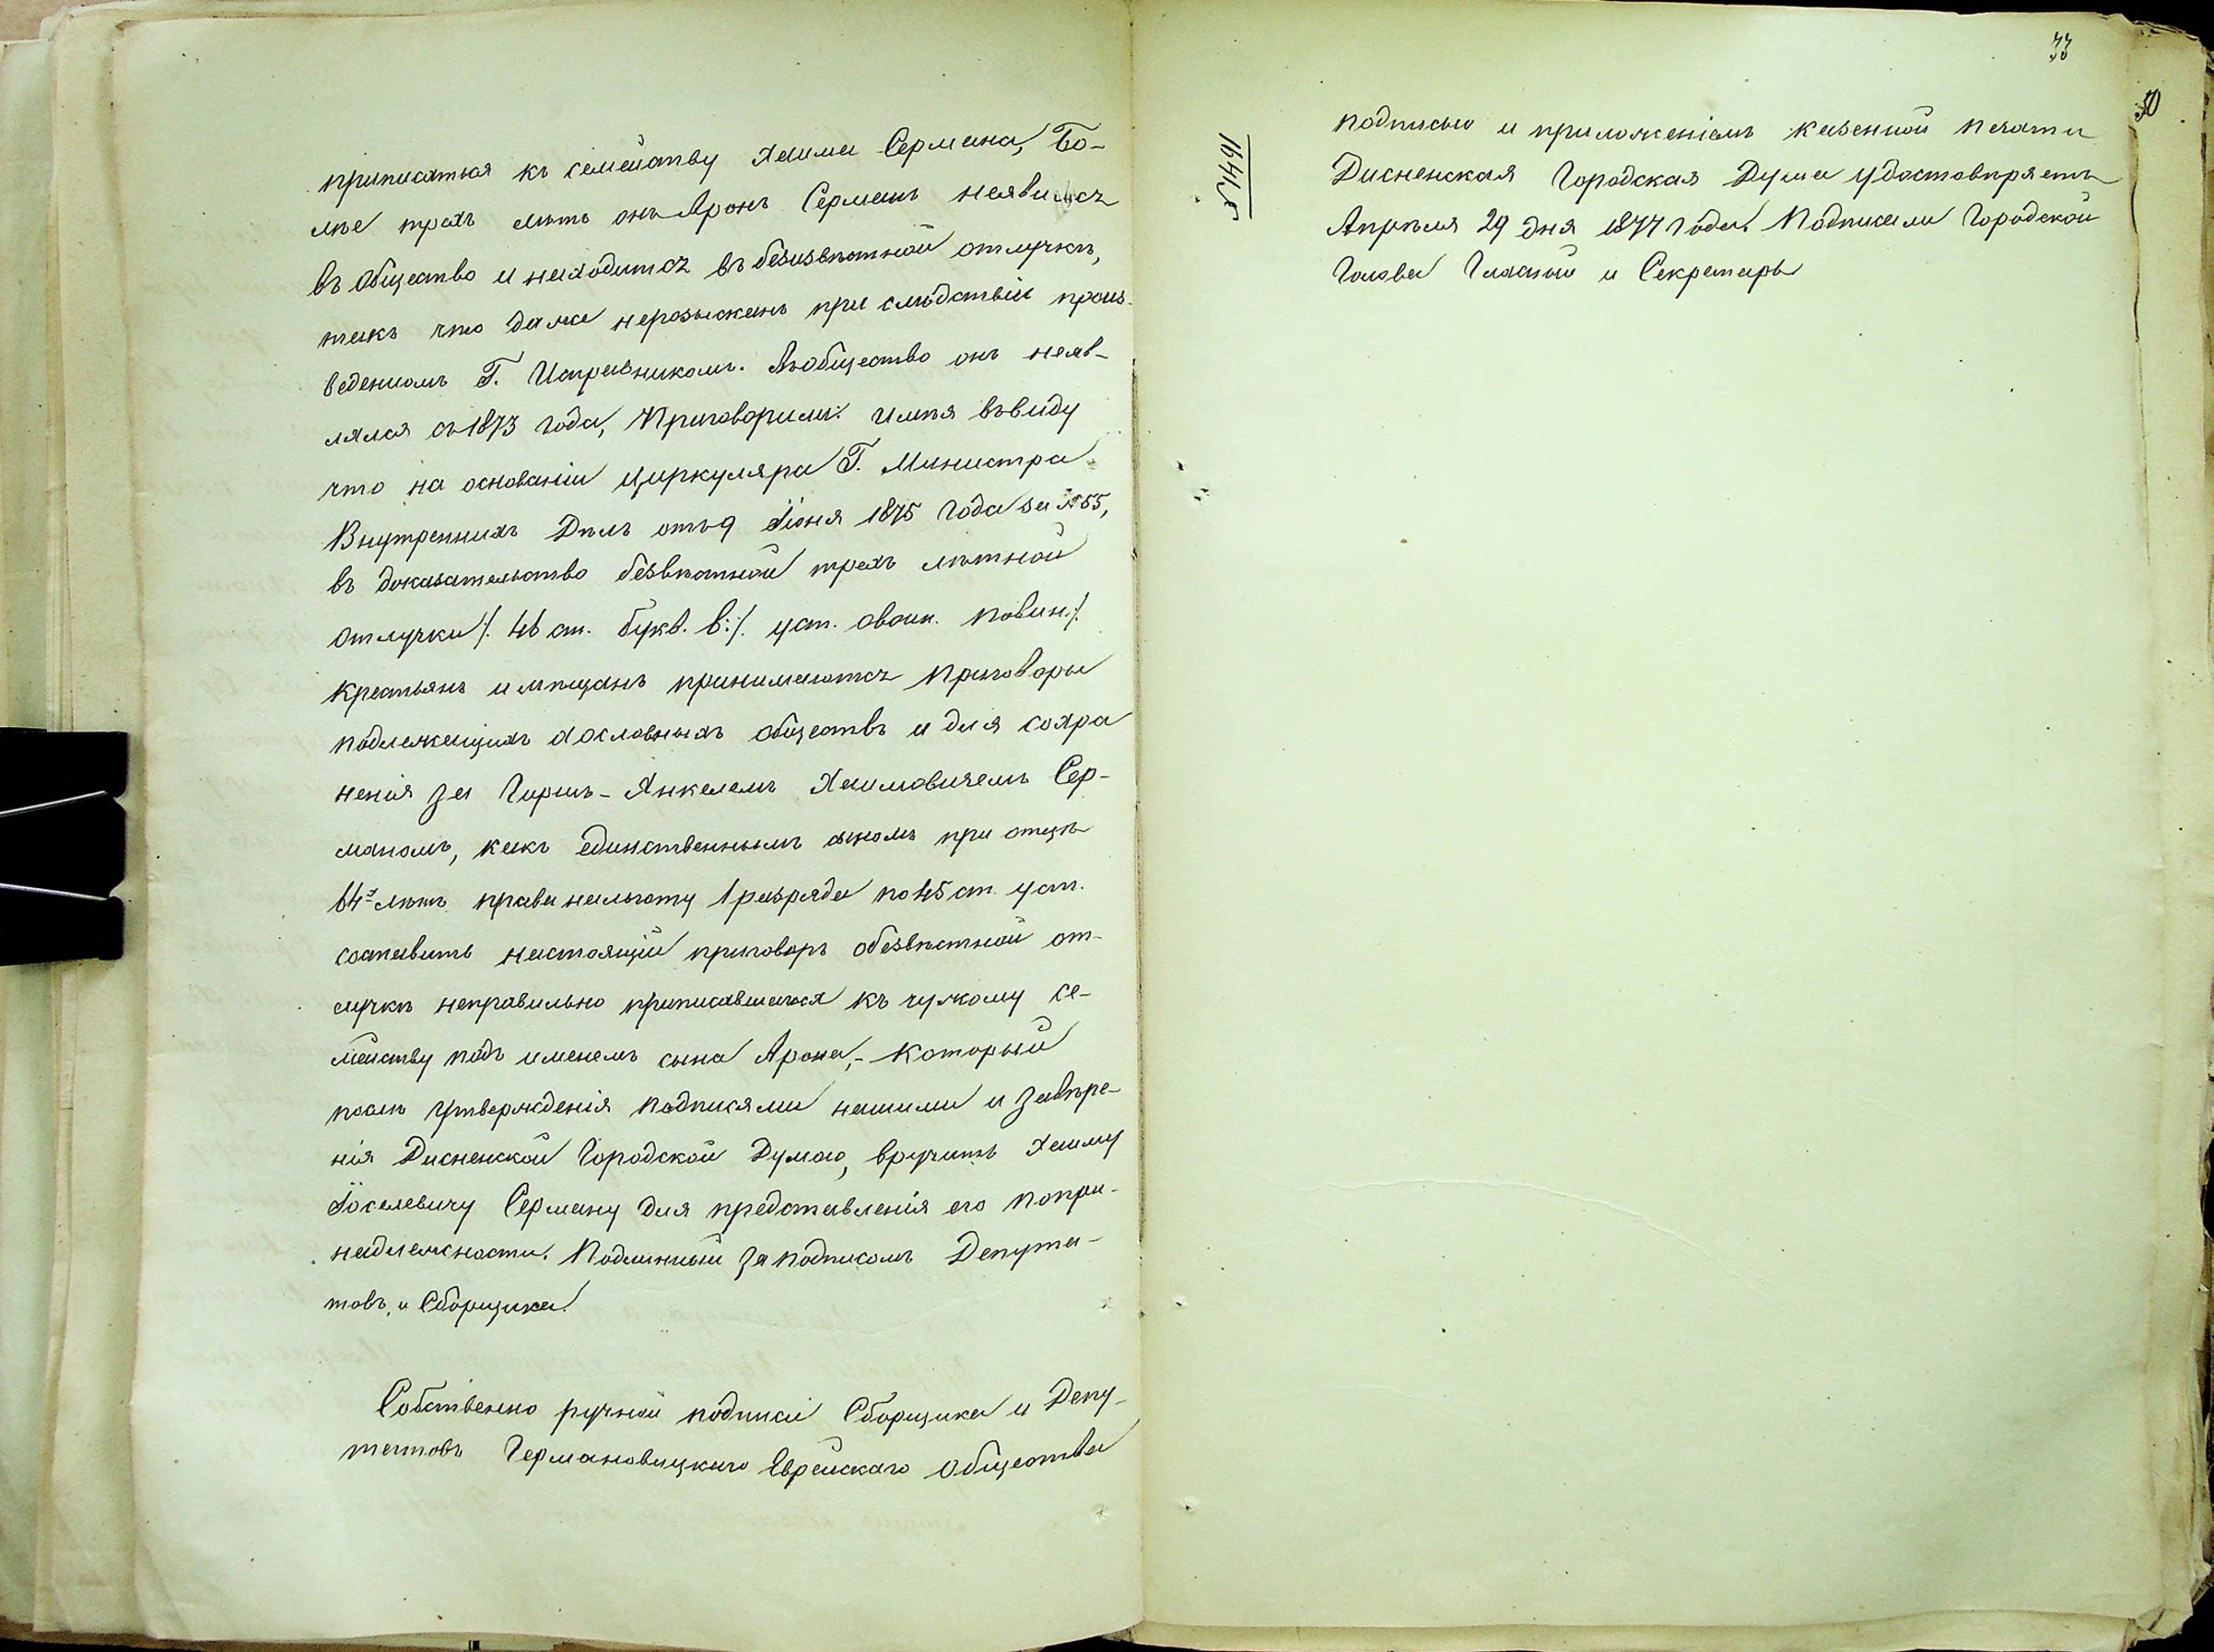 приписаться къ семейству Хаима Сермана, Бо-
лѣе трехъ лѣтъ онъ Аронъ Серманъ неявился
въ общество и находится въ безизвѣстной отлучкѣ,
такъ что даже нерозысканъ при слѣдствіи произ-
веденномъ Г. Исправникомъ. Въобщество онъ неяв-
лялся съ 1873 года, Приговорили: имѣя въвиду
что на основаніи Циркуляра Г. Министра
Внутреннихъ Дѣлъ отъ 9 Іюня 1875 года за № 55,
въ доказательство безвѣстной трехъ лѣтной
отлучки /. 46 ст. букв. в:/. уст. овоин. повин./.
крестьянъ и мѣщанъ принимаются приговоры
подлежащихъ сословныхъ обществъ и для сохра
ненія за Гиршъ-Янкелемъ Хаимовичемъ Сер-
маномъ, какъ единственнымъ сыномъ при отцѣ
64х лѣтъ права нальготу 1 разряда по 45 ст. уст.
составить настоящій приговоръ обезвѣстной от-
лучкѣ неправильно приписавшагося къ чужому се-
мейству подъ именемъ сына Арона,- который
послѣ утвержденія подписями нашими и завѣре-
нія Дисненской Городской Думою, вручить Хаиму
Іоселевичу Серману для представленія его попри-
надлежности. Подлинный за подписомъ Депута-
товъ, и Сборщика.
Собственно ручной подписи Сборщика и Депу-
татовъ Германовицкаго Еврейскаго Общества
77
50
1644/5
подписью и приложеніемъ казенной печати
Дисненская Городская Дума удостовѣряетъ
Апрѣля 29 дня 1877 года. Подписали Городской
Голова Гласный и Секретарь